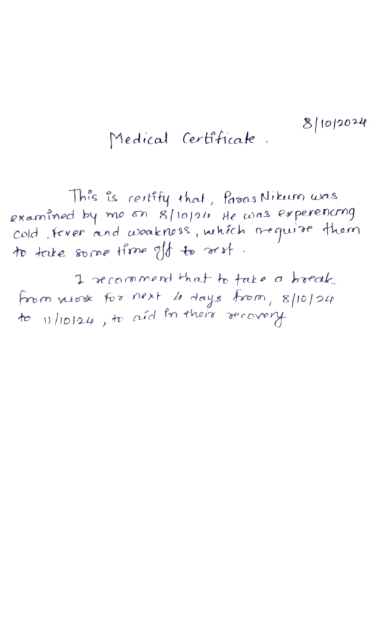 8/10/2024
Medical Certificate.
This is certify that, Paras Nikum was
examined by me on 8/10/24 He was experencing
cold, fever and weakness, which require them
to take some time off to rest.
I recommend that to take a break
from work for next 4 days from, 8/10/24
to 11/10/24, to aid in their recovery